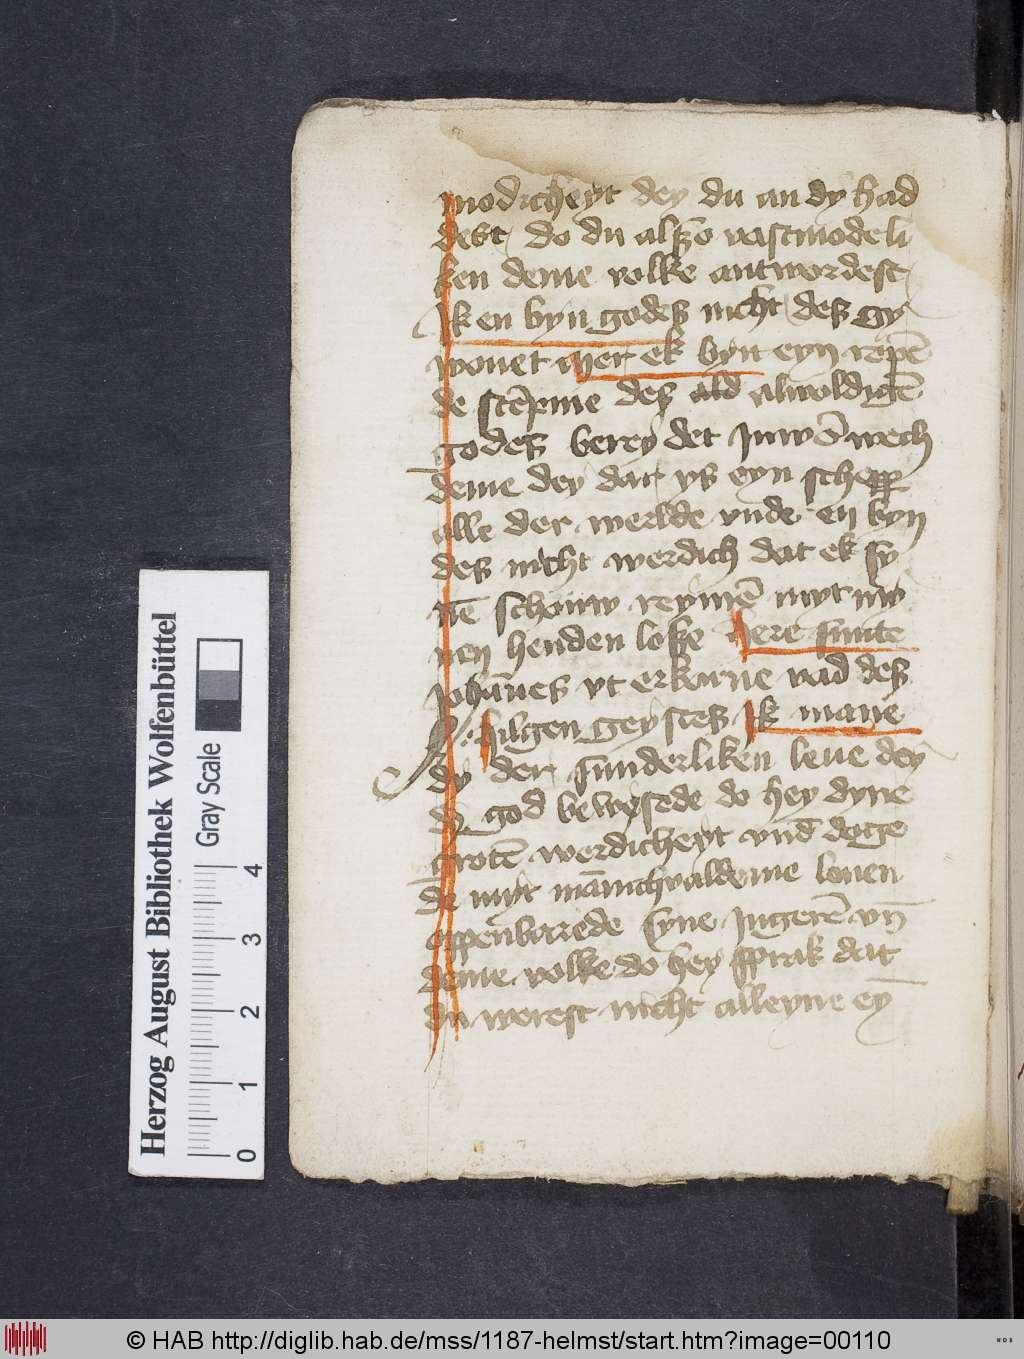 modicheyt dey du an dy had
dest do du alßo vastmodeli
ken deme volke antwordest
Ik en byn godes nicht des gy
wonet mer ek byn eyn ropē
de stēpme des ald alwoldigē
godes berey det Juwē wech
deme dey dar ys eyn schepp
alle der werlde vnde en byn
des nicht werdich dat ek sy
nē schouw reymē myt my
nen henden loße here sunte
Johānes vt erkorne vad des
hilgen geystes Ik mane
dy der sunderliken leue dey
dy god bewysede do hey dyne
groten werdicheyt vnd doge
de myt mānichvaldeme louen
oppenbarede syne Jugerē vn̄
deme volke do hey sprak dat
du werest nicht alleyne ey̅
Herzog August Bibliothek Wolfenbüttel
Gray Scale
0 1 2 3 4
© HAB http://diglib.hab.de/mss/1187-helmst/start.htm?image=00110